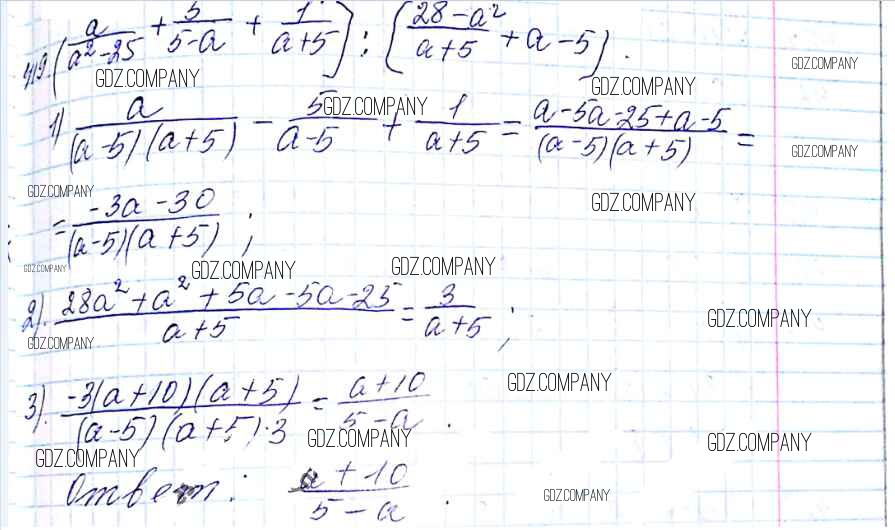 419. (a/(a²-25) + 5/(5-a) + 1/(a+5)) : ((28-a²)/(a+5) + a-5).
GDZ.COMPANY
GDZ.COMPANY
GDZ.COMPANY
1) a/((a-5)(a+5)) - 5/(a-5) + 1/(a+5) = (a-5a-25+a-5)/((a-5)(a+5)) =
GDZ.COMPANY
GDZ.COMPANY
= (-3a-30)/((a-5)(a+5)) ;
GDZ.COMPANY
GDZ.COMPANY
GDZ.COMPANY
GDZ.COMPANY
GDZ.COMPANY
2). (28a²+a²+5a-5a-25)/(a+5) = 3/(a+5) ;
GDZ.COMPANY
GDZ.COMPANY
3). (-3(a+10)(a+5))/((a-5)(a+5)·3) = (a+10)/(5-a) .
GDZ.COMPANY
GDZ.COMPANY
GDZ.COMPANY
GDZ.COMPANY
Ответ: (a+10)/(5-a) .
GDZ.COMPANY